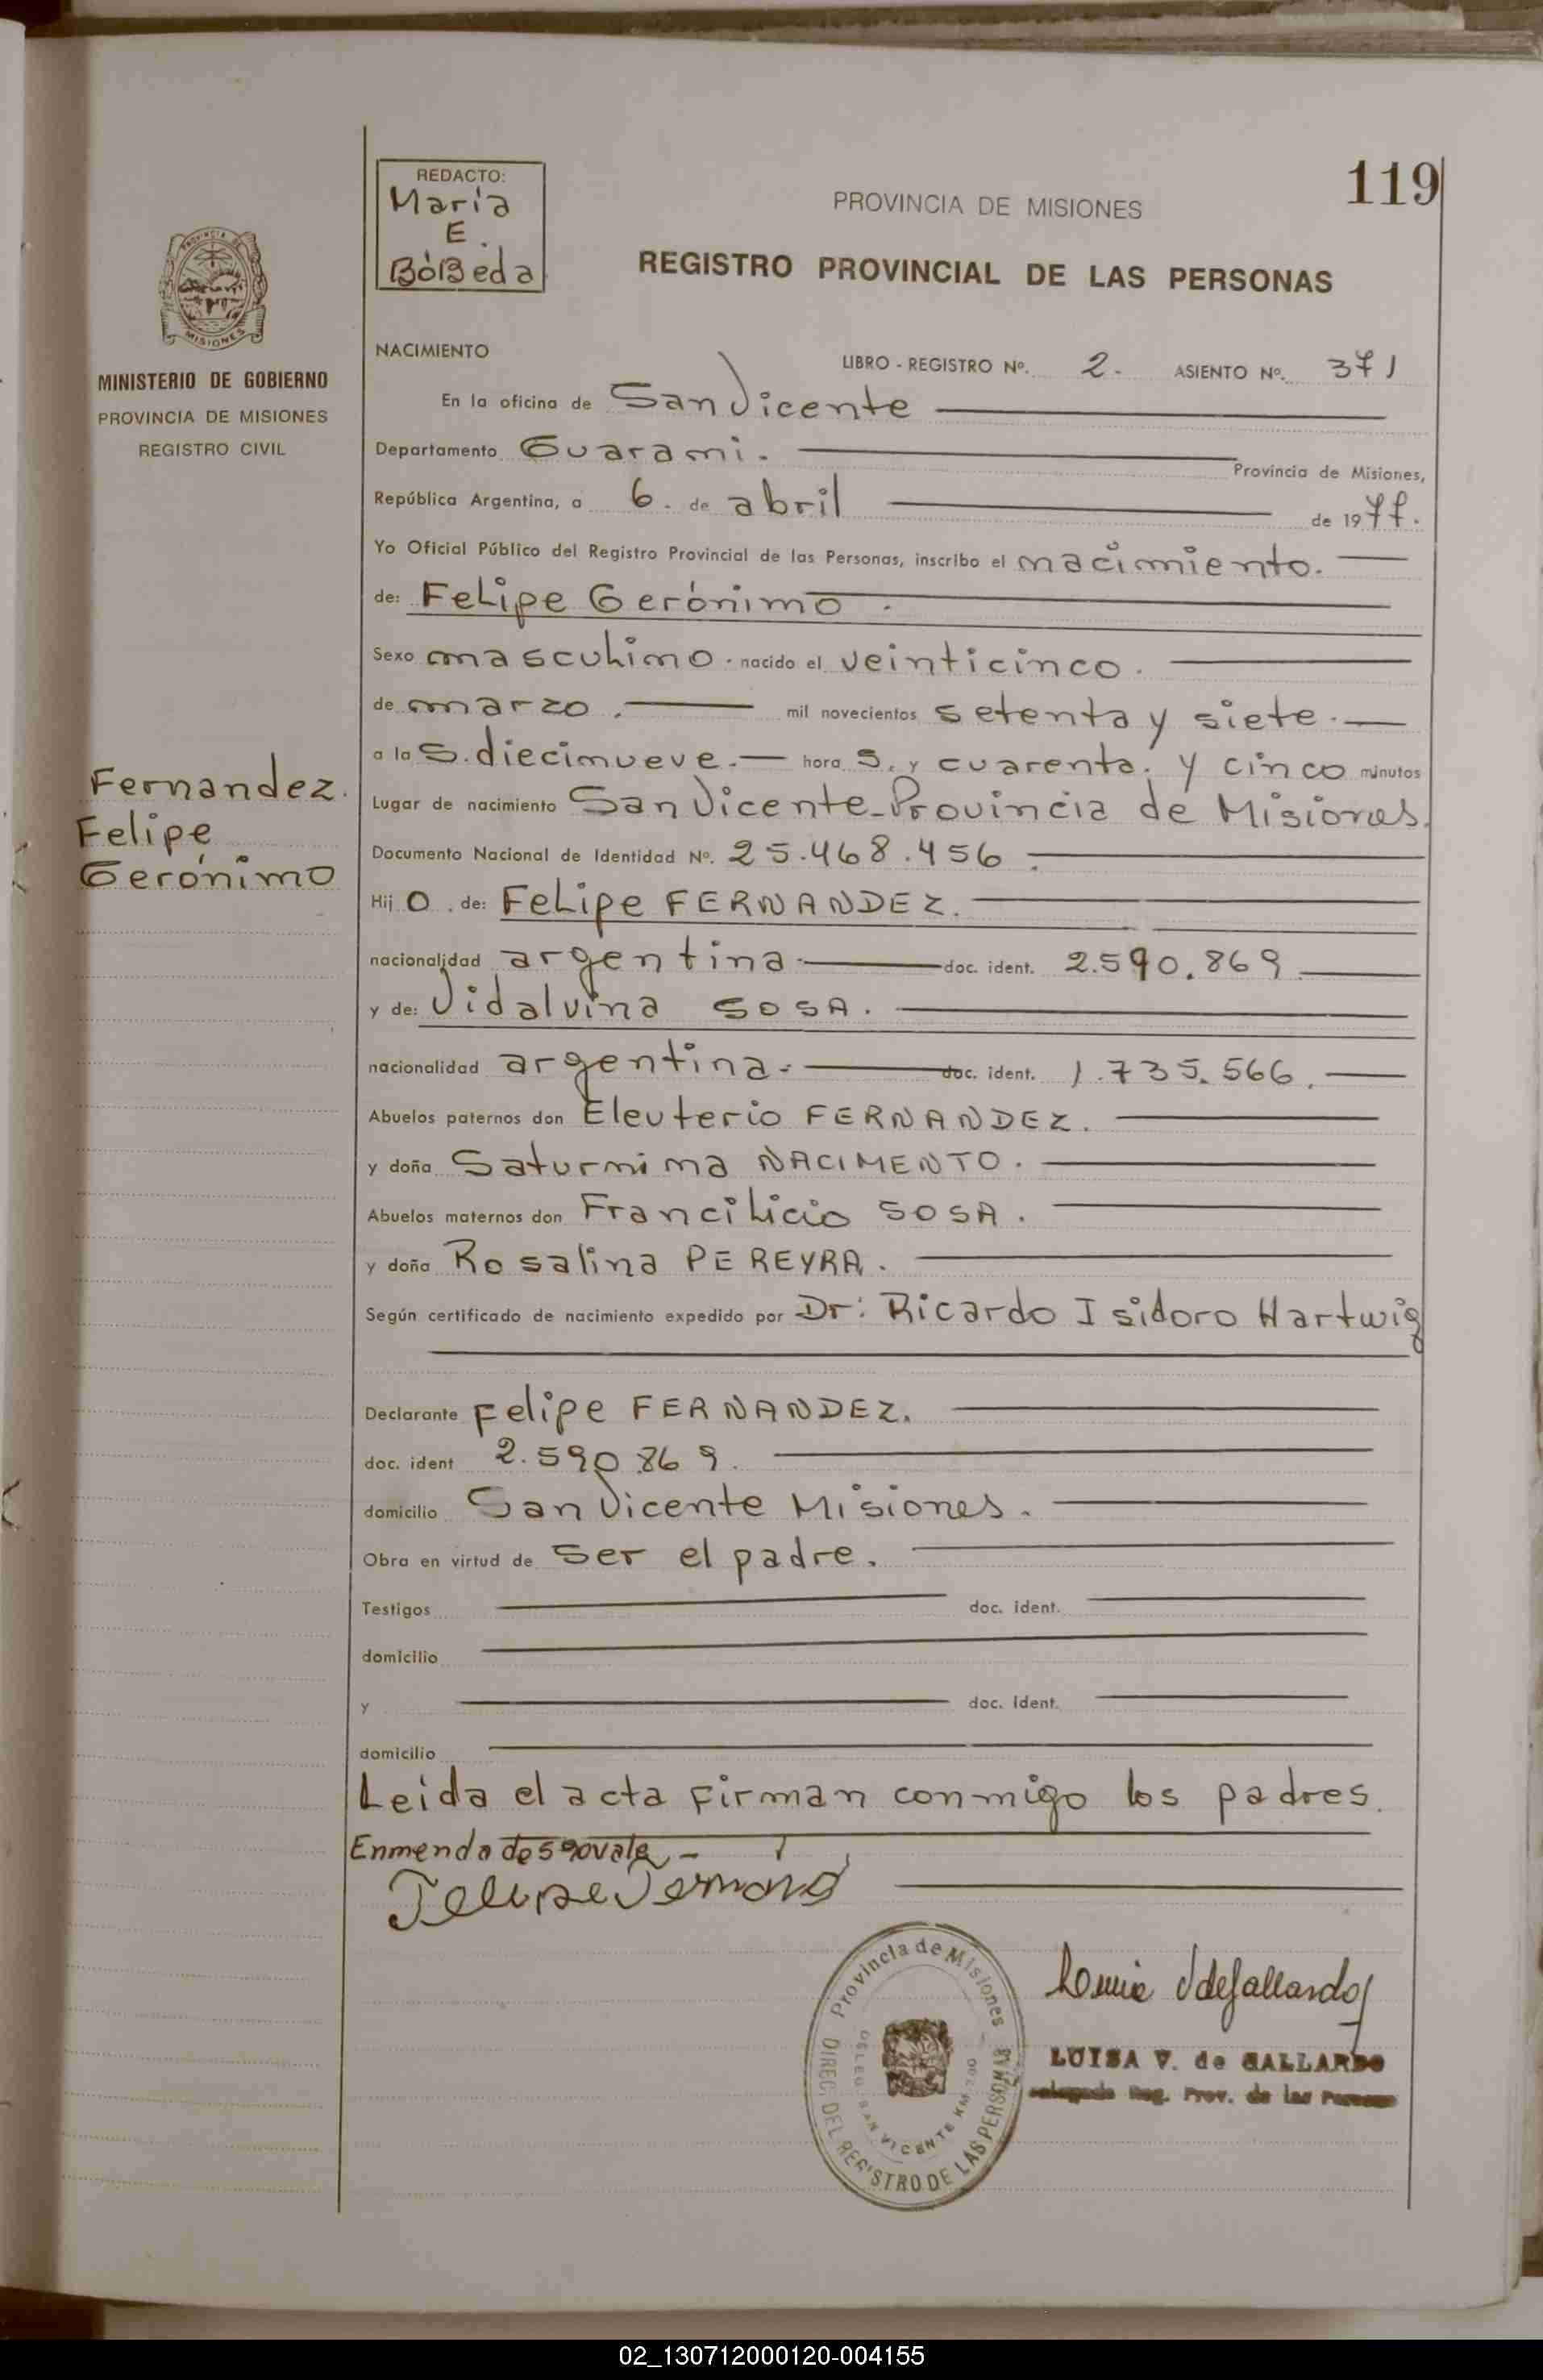 119
REDACTO:
Maria
E.
BòlBeda
PROVINCIA DE MISIONES
REGISTRO PROVINCIAL DE LAS PERSONAS
PROVINCIA DE
MISIONES
MINISTERIO DE GOBIERNO
PROVINCIA DE MISIONES
REGISTRO CIVIL
NACIMIENTO
LIBRO - REGISTRO Nº. 2. ASIENTO Nº. 371
En la oficina de San Vicente
Departamento Guarami. Provincia de Misiones,
República Argentina, a 6. de abril de 1977.
Yo Oficial Público del Registro Provincial de las Personas, inscribo el nacimiento.
de: Felipe Gerónimo.
Sexo masculino. nacido el veinticinco.
de marzo. mil novecientos setenta y siete.
a la s. diecinueve. hora s. y cuarenta. y cinco minutos
Fernandez.
Felipe
Gerónimo
Lugar de nacimiento San Vicente-Provincia de Misiones.
Documento Nacional de Identidad Nº. 25.468.456.
Hij o. de: Felipe FERNANDEZ.
nacionalidad argentina. doc. ident. 2.590.869
y de: Vidalvina SOSA.
nacionalidad argentina. doc. ident. 1.735.566.
Abuelos paternos don Eleuterio FERNANDEZ.
y doña Saturnina NACIMENTO.
Abuelos maternos don Francilicio SOSA.
y doña Rosalina PEREYRA.
Según certificado de nacimiento expedido por Dr: Ricardo Isidoro Hartwig
Declarante Felipe FERNANDEZ.
doc. ident 2.590.869.
domicilio San Vicente Misiones.
Obra en virtud de ser el padre.
Testigos doc. ident.
domicilio
y doc. ident.
domicilio
Leida el acta firman conmigo los padres.
Enmendado 590 vale.-
Provincia de Misiones
DIREC. DEL REGISTRO DE LAS PERSONAS
DELEG. SAN VICENTE KM.
LUISA V. de GALLARDO
Reg. Prov. de las
02_130712000120-004155